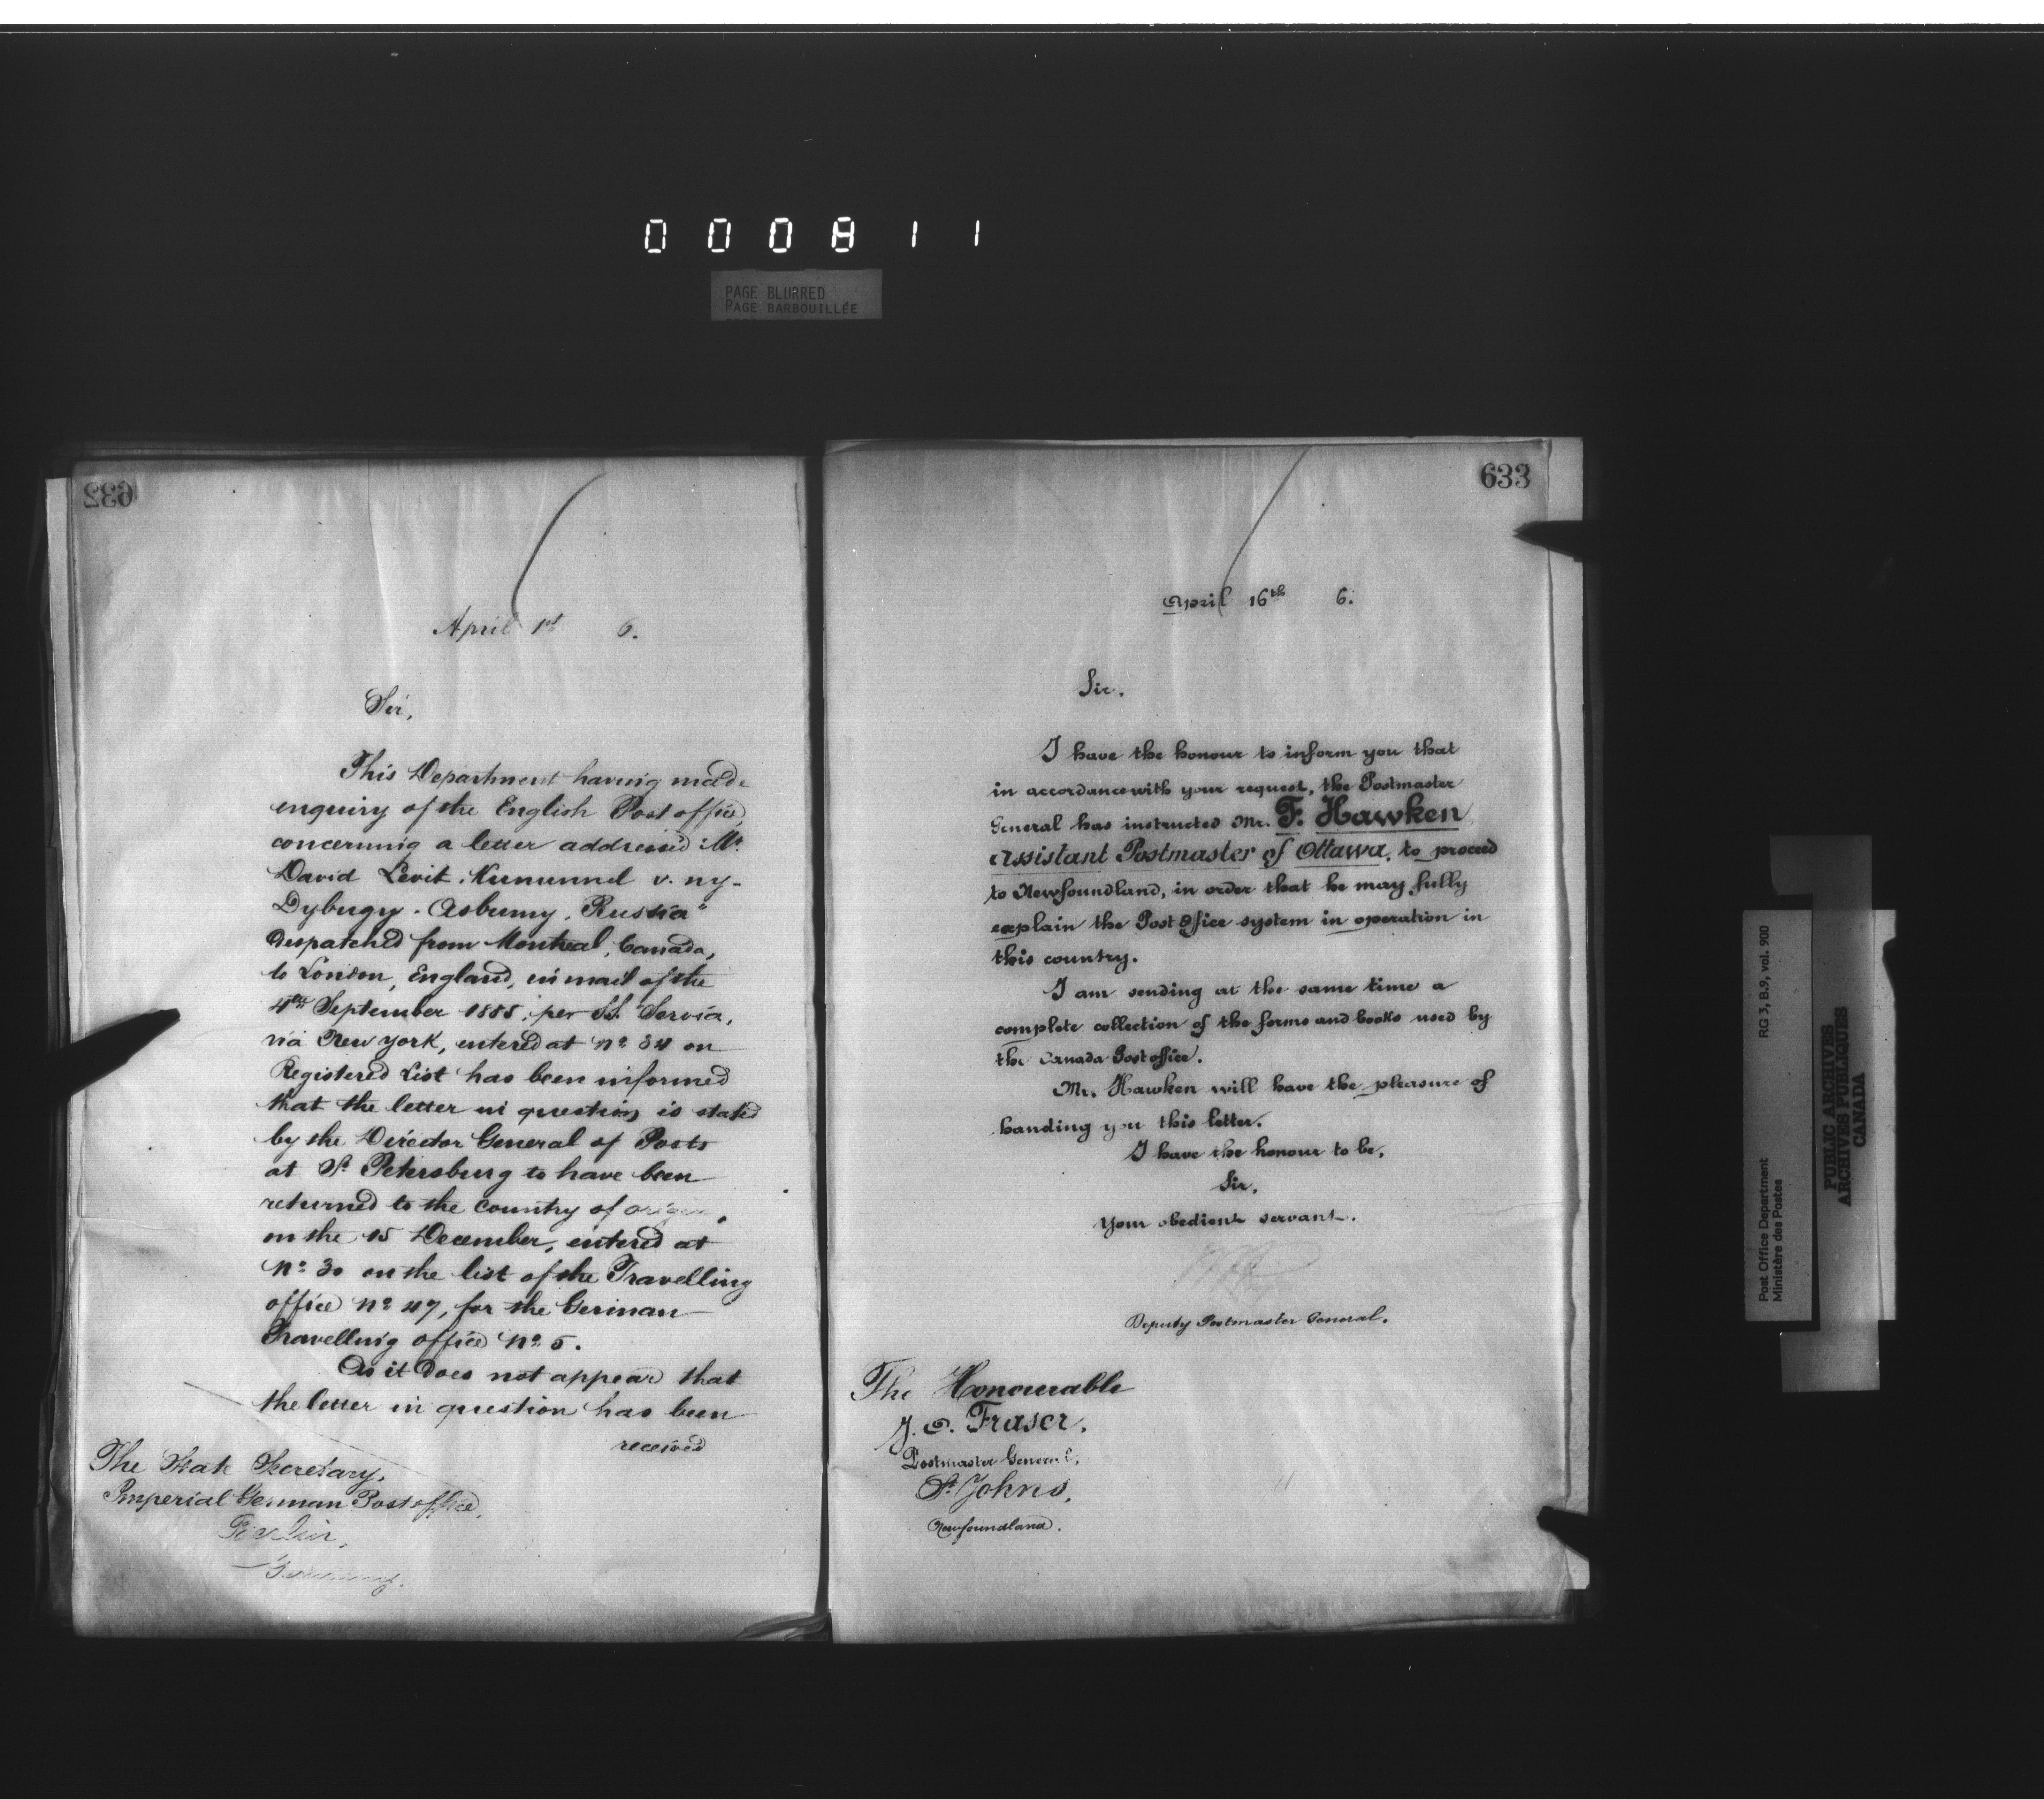 000811
PAGE BLURRED
PAGE BARBOUILLÉE
632
April 1st 6.
Sir,
This Department having made
enquiry of the English Post office,
concerning a letter addressed "Mr.
David Levit. v. ny-
Dybugy. Asbumy. Russia"
despatched from Montreal, Canada,
to London, England, in mail of the
4th September 1885, per SS. Servia,
via New York, entered at No. 34 on
Registered List has been informed
that the letter in question is stated
by the Director General of Posts
at St. Petersburg to have been
returned to the country of origin,
on the 15 December, entered at
No. 30 on the list of the Travelling
office No. 47, for the German
Travelling office No. 5.
As it does not appear that
the letter in question has been
received
The State Secretary,
Imperial German Post office,
Berlin,
Germany.
633
April 16th 6.
Sir.
I have the honour to inform you that
in accordance with your request, the Postmaster
General has instructed Mr. F. Hawken,
Assistant Postmaster of Ottawa, to proceed
to Newfoundland, in order that he may fully
explain the Post Office system in operation in
this country.
I am sending at the same time a
complete collection of the forms and books used by
the Canada Post office.
Mr. Hawken will have the pleasure of
handing you this letter.
I have the honour to be,
Sir.
Your obedient servant.
Deputy Postmaster General.
The Honourable
J. O. Fraser.
Postmaster General,
St. Johns,
Newfoundland.
Post Office Department RG 3, B.9, vol. 900
Ministère des Postes
PUBLIC ARCHIVES
ARCHIVES PUBLIQUES
CANADA